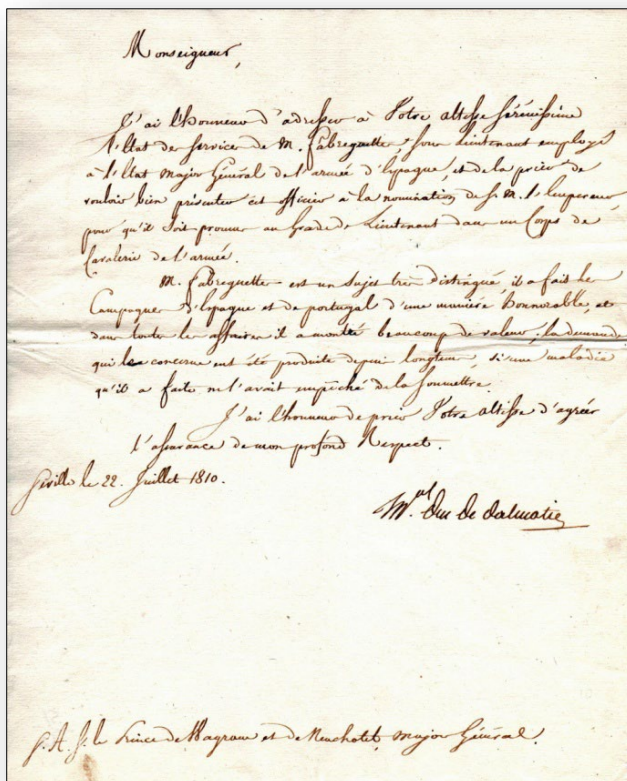 Monseigneur,
J'ai l'honneur d'adresser à Votre altesse sérénissime
l'Etat de service de M. Fabreguette, sous Lieutenant employé
à l'Etat major Général de l'armée d'Espagne, et de la prier de
vouloir bien présenter cet officier à la nomination de S. M. l'Empereur,
pour qu'il soit promu au Grade de Lieutenant dans un Corps de
Cavalerie de l'armée.
M. Fabreguette est un sujet très distingué, il a fait les
Campagnes d'Espagne et de portugal d'une manière honorable, et
dans toutes les affaires il a montré beaucoup de valeur, la demande
qui le concerne eut été produite depuis longtems, si une maladie
qu'il a faite ne l'avait empêché de la soumettre.
J'ai l'honneur de prier Votre altesse d'agréer
l'assurance de mon profond Respect.
Séville le 22. Juillet 1810.
M.al Duc de Dalmatie
S. A. S. le Prince de Wagram et de Neuchatel, Major Général.